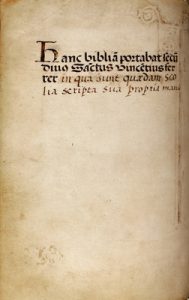 Hanc bibliā portabat secū
Diuus Sāctus Vincētius fer
rer in qua sunt quædam sco
lia scripta sua propria manu